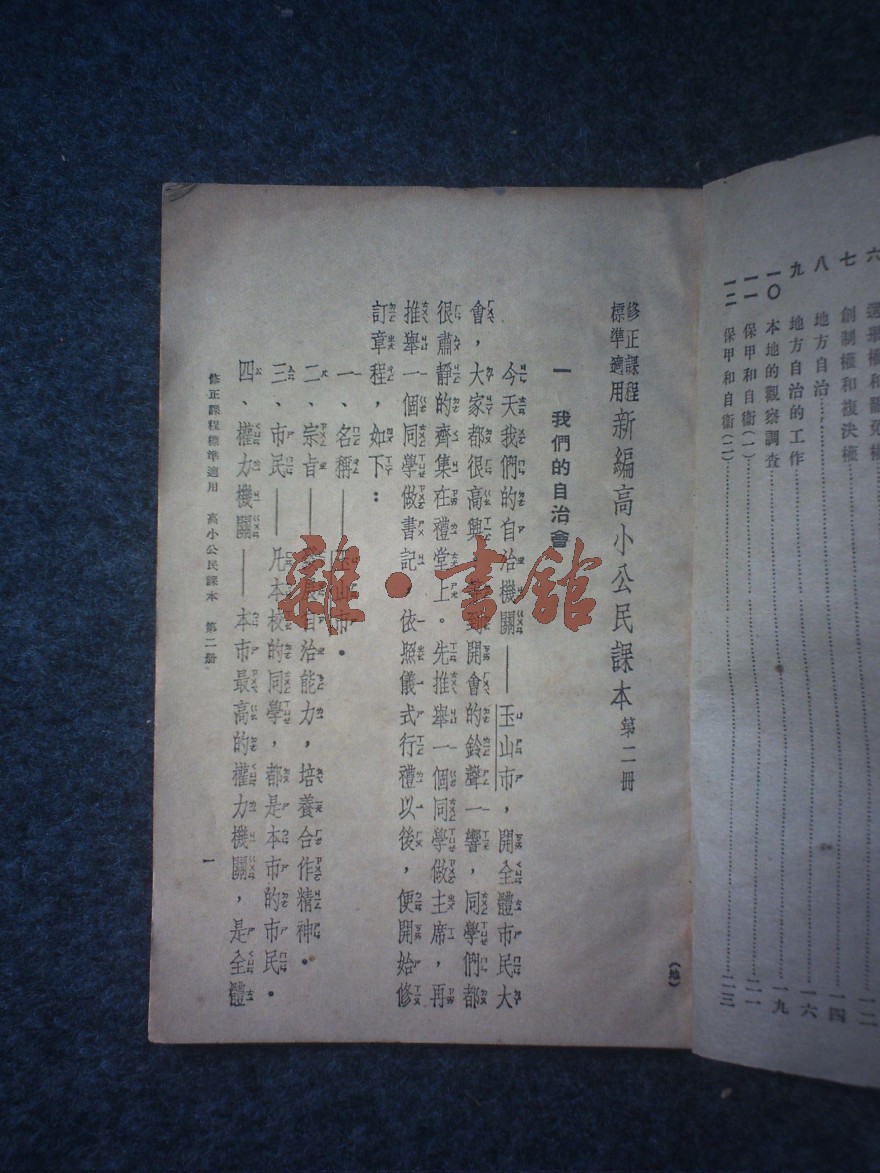 選舉權和罷免權……一二
七 創制權和複決權……一四
八 地方自治……一六
九 地方自治的工作……一九
一〇 本地的觀察調查……二一
一一 保甲和自衛(一)……
一二 保甲和自衛(二)……二三
修正課程標準適用 新編高小公民課本 第二冊
(地)
一 我們的自治會
今天我們的自治機關——玉山市,開全體市民大
會,大家都很高興 到開會的鈴聲一響,同學們都
很肅靜的齊集在禮堂上。先推舉一個同學做主席,再
推舉一個同學做書記,依照儀式行禮以後,便開始修
訂章程,如下:
一、名稱——玉山市。
二、宗旨—— 自治能力,培養合作精神。
三、市民——凡本校的同學,都是本市的市民。
四、權力機關——本市最高的權力機關,是全體
修正課程標準適用 高小公民課本 第二冊 一
雜·書館